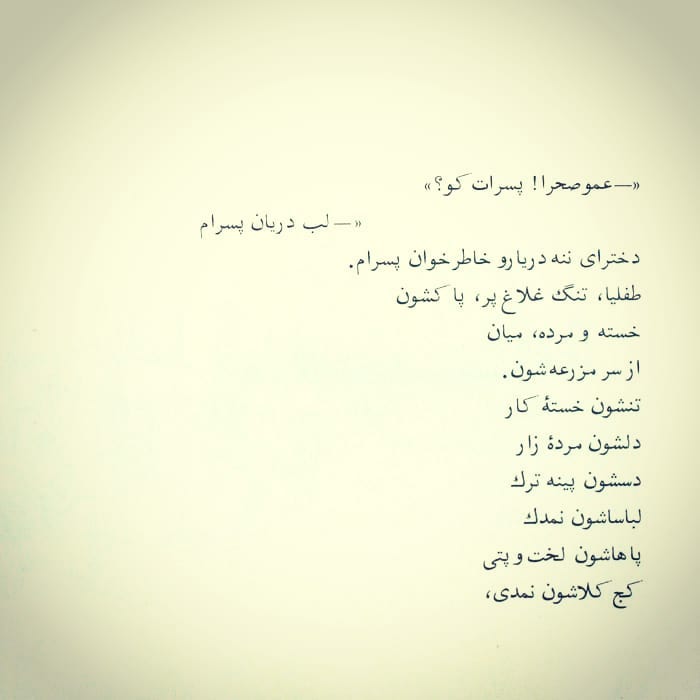 «—عموصحرا! پسرات کو؟»
«— لب دریان پسرام
دخترای ننه دریارو خاطرخوان پسرام.
طفلیا، تنگ غلاغ پر، پا کشون
خسته و مرده، میان
از سر مزرعه‌شون.
تنشون خستهٔ کار
دلشون مردهٔ زار
دسشون پینه ترك
لباساشون نمدك
پاهاشون لخت و پتی
کج کلاشون نمدی،